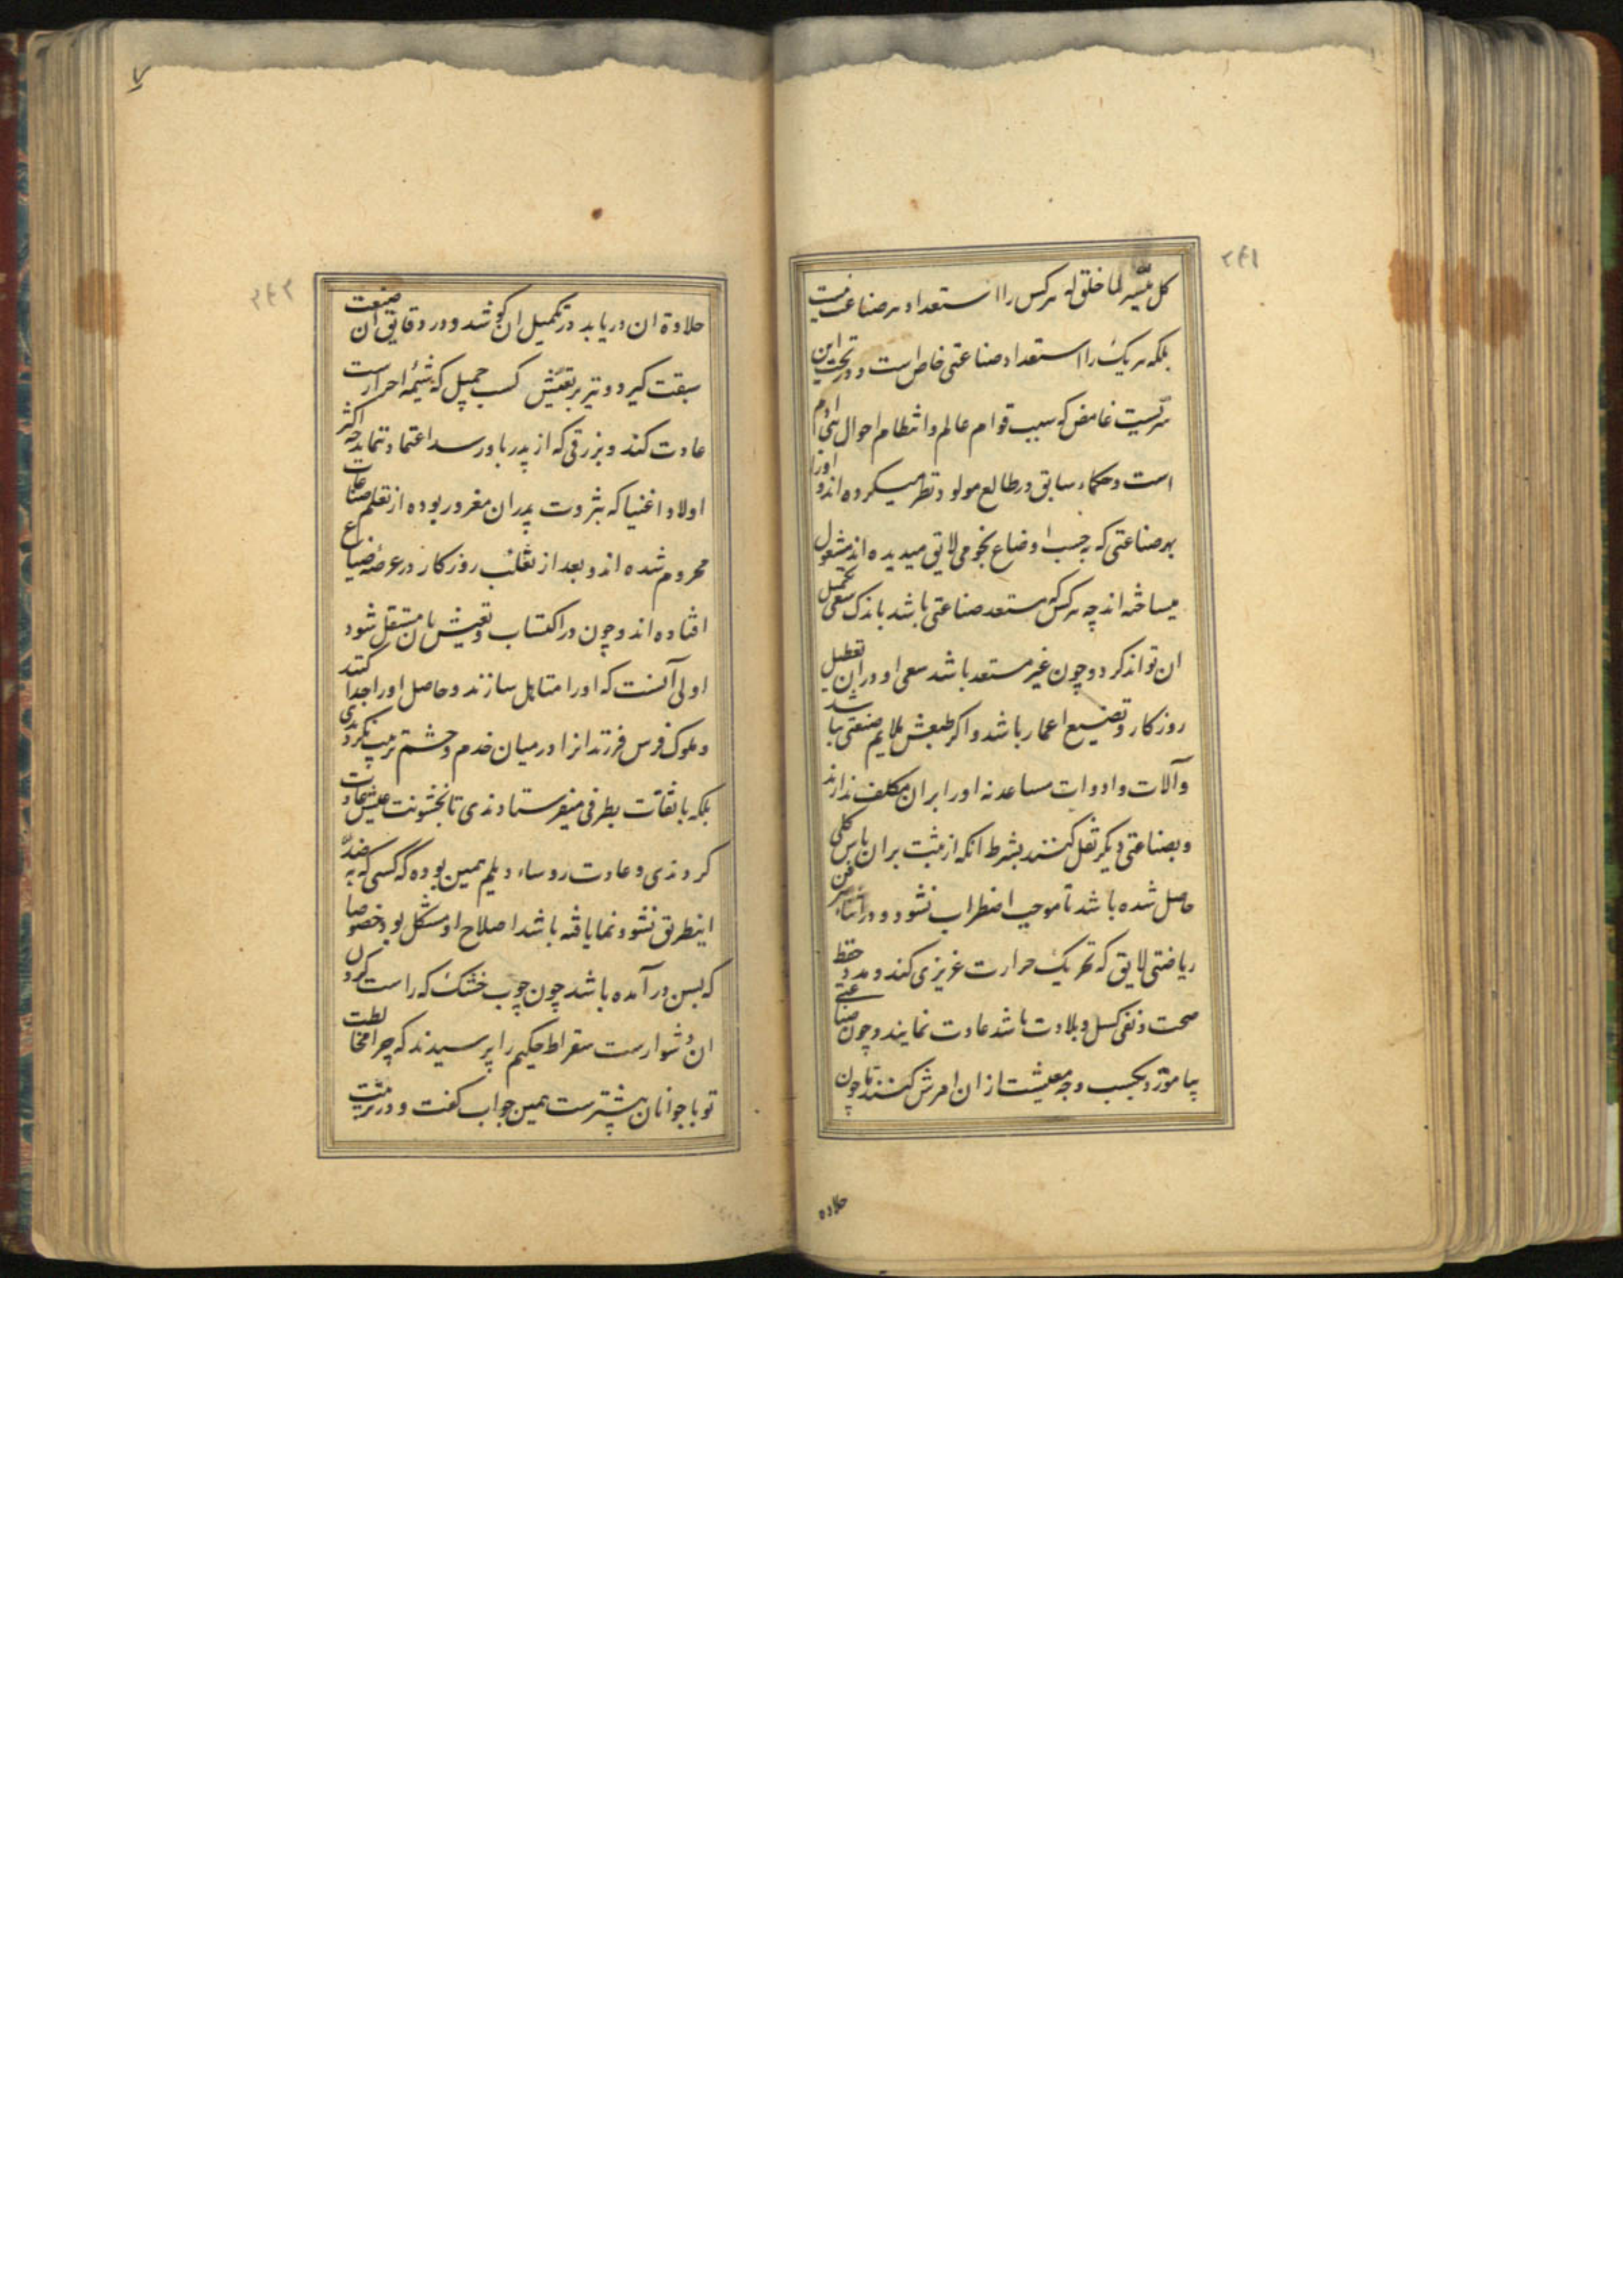 ۲۴۱
کل میسر لما خلق له هرکس را استعداد هر صناعت نیست
بلکه هر یک را استعداد صناعتی خاص است و در تحت این
سریست غامض که سبب قوام عالم و انتظام احوال بنی ادم
است و حکماء سابق در طالع مولود نظر میکرده اند و اورا
بهر صناعتی که بحسب اوضاع نجومی لایق میدیده اند مشغول
میساخته اند چه هرکس که مستعد صناعتی باشد باندک سعی تحصیل
ان تواند کرد و چون غیر مستعد باشد سعی او در ان تعطیل
روزکار و تضییع اعمار باشد و اکر طبعش ملایم صنعتی نباشد
و آلات و ادوات مساعد نه اورا بران مکلف ندارند
و بصناعتی دیکر نقل کنند بشرط انکه از مثبت بران یاس کلی
حاصل شده باشد تا موجب اضطراب نشود و در اثناء هر فن
ریاضتی لایق که تحریک حرارت غریزی کند و مدد حفظ
صحت و نفی کسل و بلادت باشد عادت نمایند و چون صناعتی
بیاموزد بکسب وجه معیشت از ان امرش کنند تا چون
حلاوه
۲۴۲
حلاوة ان دریابد در تکمیل ان کوشد و در دقایق ان صنعت
سبقت کیرد و نیز بر تعیش کسب جمیل که شیمه احرارست
عادت کند و بزرقی که از پدر باو رسد اعتماد ننماید چه اکثر
اولاد اغنیا که بثروت پدران مغرور بوده از تعلم صناعات
محروم شده اند و بعد از تقلب روزکار در عرضه ضیاع
افتاده اند و چون در اکتساب و تعیش بان مستقل شود
اولی آنست که اورا متاهل سازند و حاصل اورا جدا کنند
و ملوک فرس فرزندانرا در میان خدم و حشم تربیت نکردندی
بلکه با ثقات بطرفی میفرستادندی تا بخشونت عیش عادت
کردندی و عادت روساء دیلم همین بوده که کسی که بضد
اینطریق نشو و نما یافته باشد اصلاح او مشکل بود خصوصا
که بسن در آمده باشد چون چوب خشک که راست کردن
ان دشوارست سقراط حکیم را پرسیدند که چرا مخالطت
تو با جوانان بیشترست همین جواب کفت و در تربیت